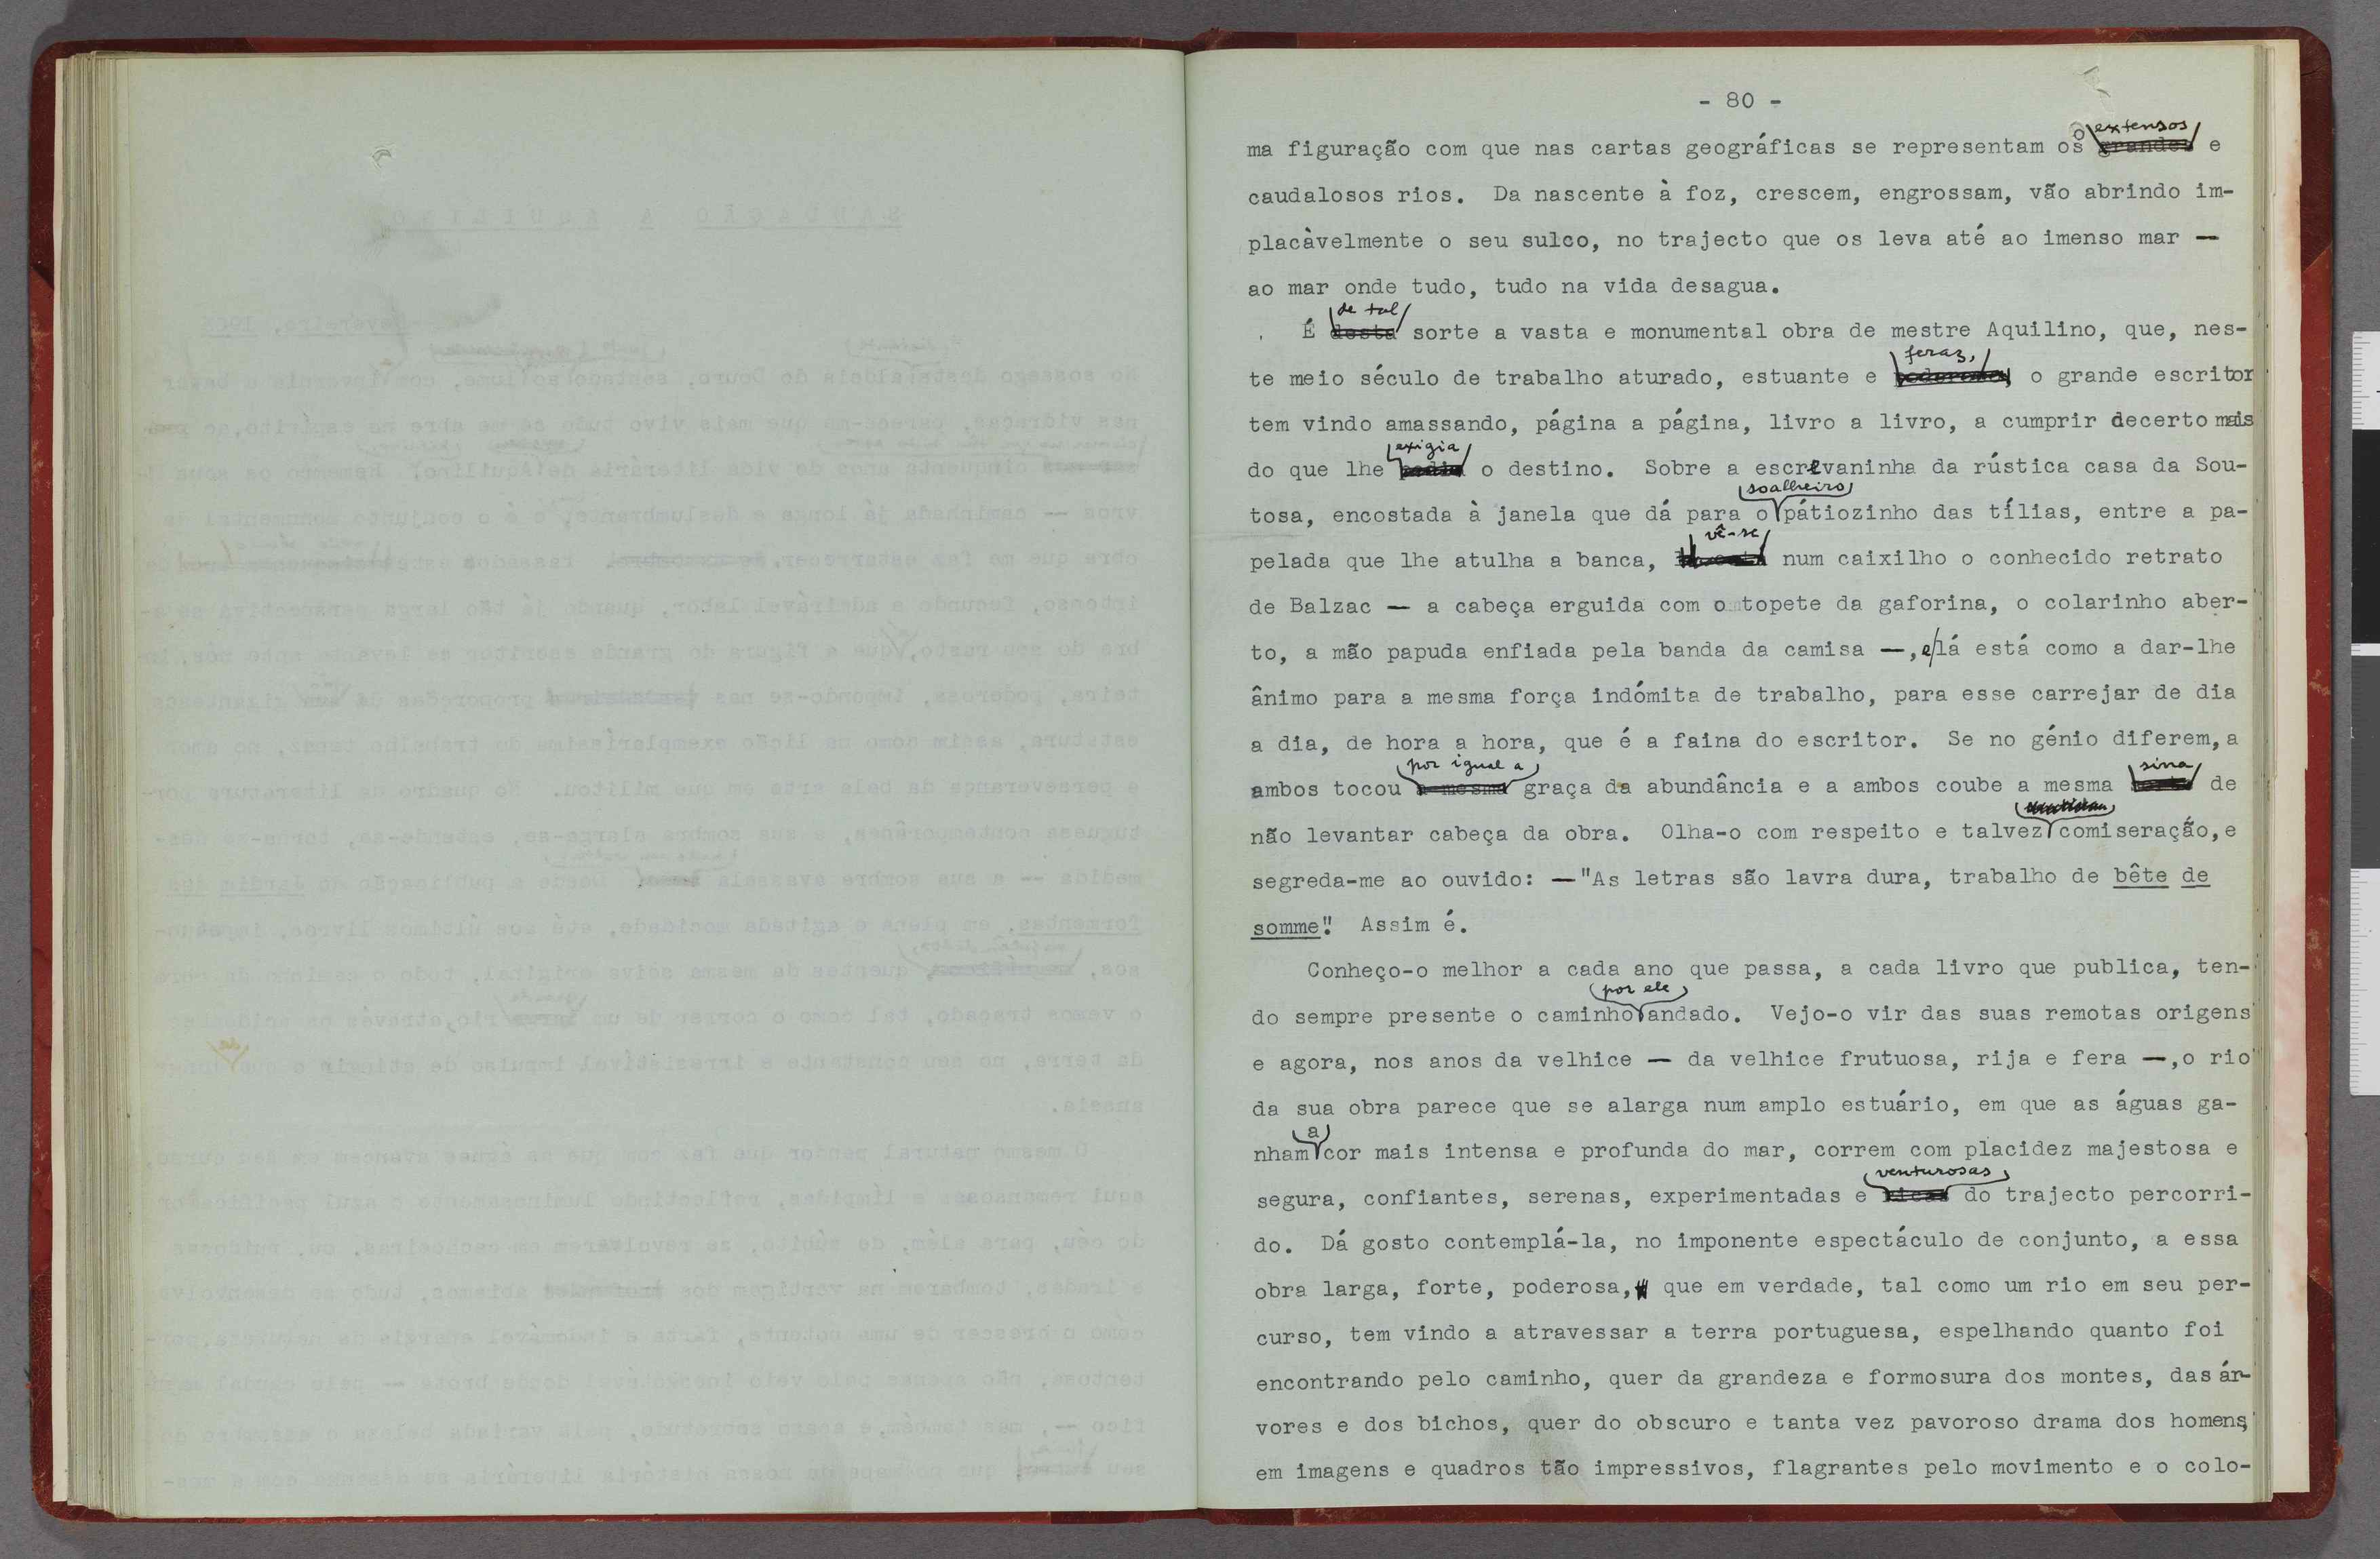 - 80 -
ma figuração com que nas cartas geográficas se representam os extensos e
caudalosos rios. Da nascente à foz, crescem, engrossam, vão abrindo im-
placàvelmente o seu sulco, no trajecto que os leva até ao imenso mar —
ao mar onde tudo, tudo na vida desagua.
É de tal sorte a vasta e monumental obra de mestre Aquilino, que, nes-
te meio século de trabalho aturado, estuante e feraz, o grande escritor
tem vindo amassando, página a página, livro a livro, a cumprir decerto mais
do que lhe exigia o destino. Sobre a escrevaninha da rústica casa da Sou-
tosa, encostada à janela que dá para o soalheiro pátiozinho das tílias, entre a pa-
pelada que lhe atulha a banca, vê-se num caixilho o conhecido retrato
de Balzac — a cabeça erguida com o topete da gaforina, o colarinho aber-
to, a mão papuda enfiada pela banda da camisa —, e lá está como a dar-lhe
ânimo para a mesma força indómita de trabalho, para esse carrejar de dia
a dia, de hora a hora, que é a faina do escritor. Se no génio diferem, a
ambos tocou por igual a graça da abundância e a ambos coube a mesma sina de
não levantar cabeça da obra. Olha-o com respeito e talvez comiseração, e
segreda-me ao ouvido: —"As letras são lavra dura, trabalho de bête de
somme". Assim é.
Conheço-o melhor a cada ano que passa, a cada livro que publica, ten-
do sempre presente o caminho por ele andado. Vejo-o vir das suas remotas origens
e agora, nos anos da velhice — da velhice frutuosa, rija e fera —, o rio
da sua obra parece que se alarga num amplo estuário, em que as águas ga-
nham a cor mais intensa e profunda do mar, correm com placidez majestosa e
segura, confiantes, serenas, experimentadas e venturosas do trajecto percorri-
do. Dá gosto contemplá-la, no imponente espectáculo de conjunto, a essa
obra larga, forte, poderosa, que em verdade, tal como um rio em seu per-
curso, tem vindo a atravessar a terra portuguesa, espelhando quanto foi
encontrando pelo caminho, quer da grandeza e formosura dos montes, das ár-
vores e dos bichos, quer do obscuro e tanta vez pavoroso drama dos homens,
em imagens e quadros tão impressivos, flagrantes pelo movimento e o colo-